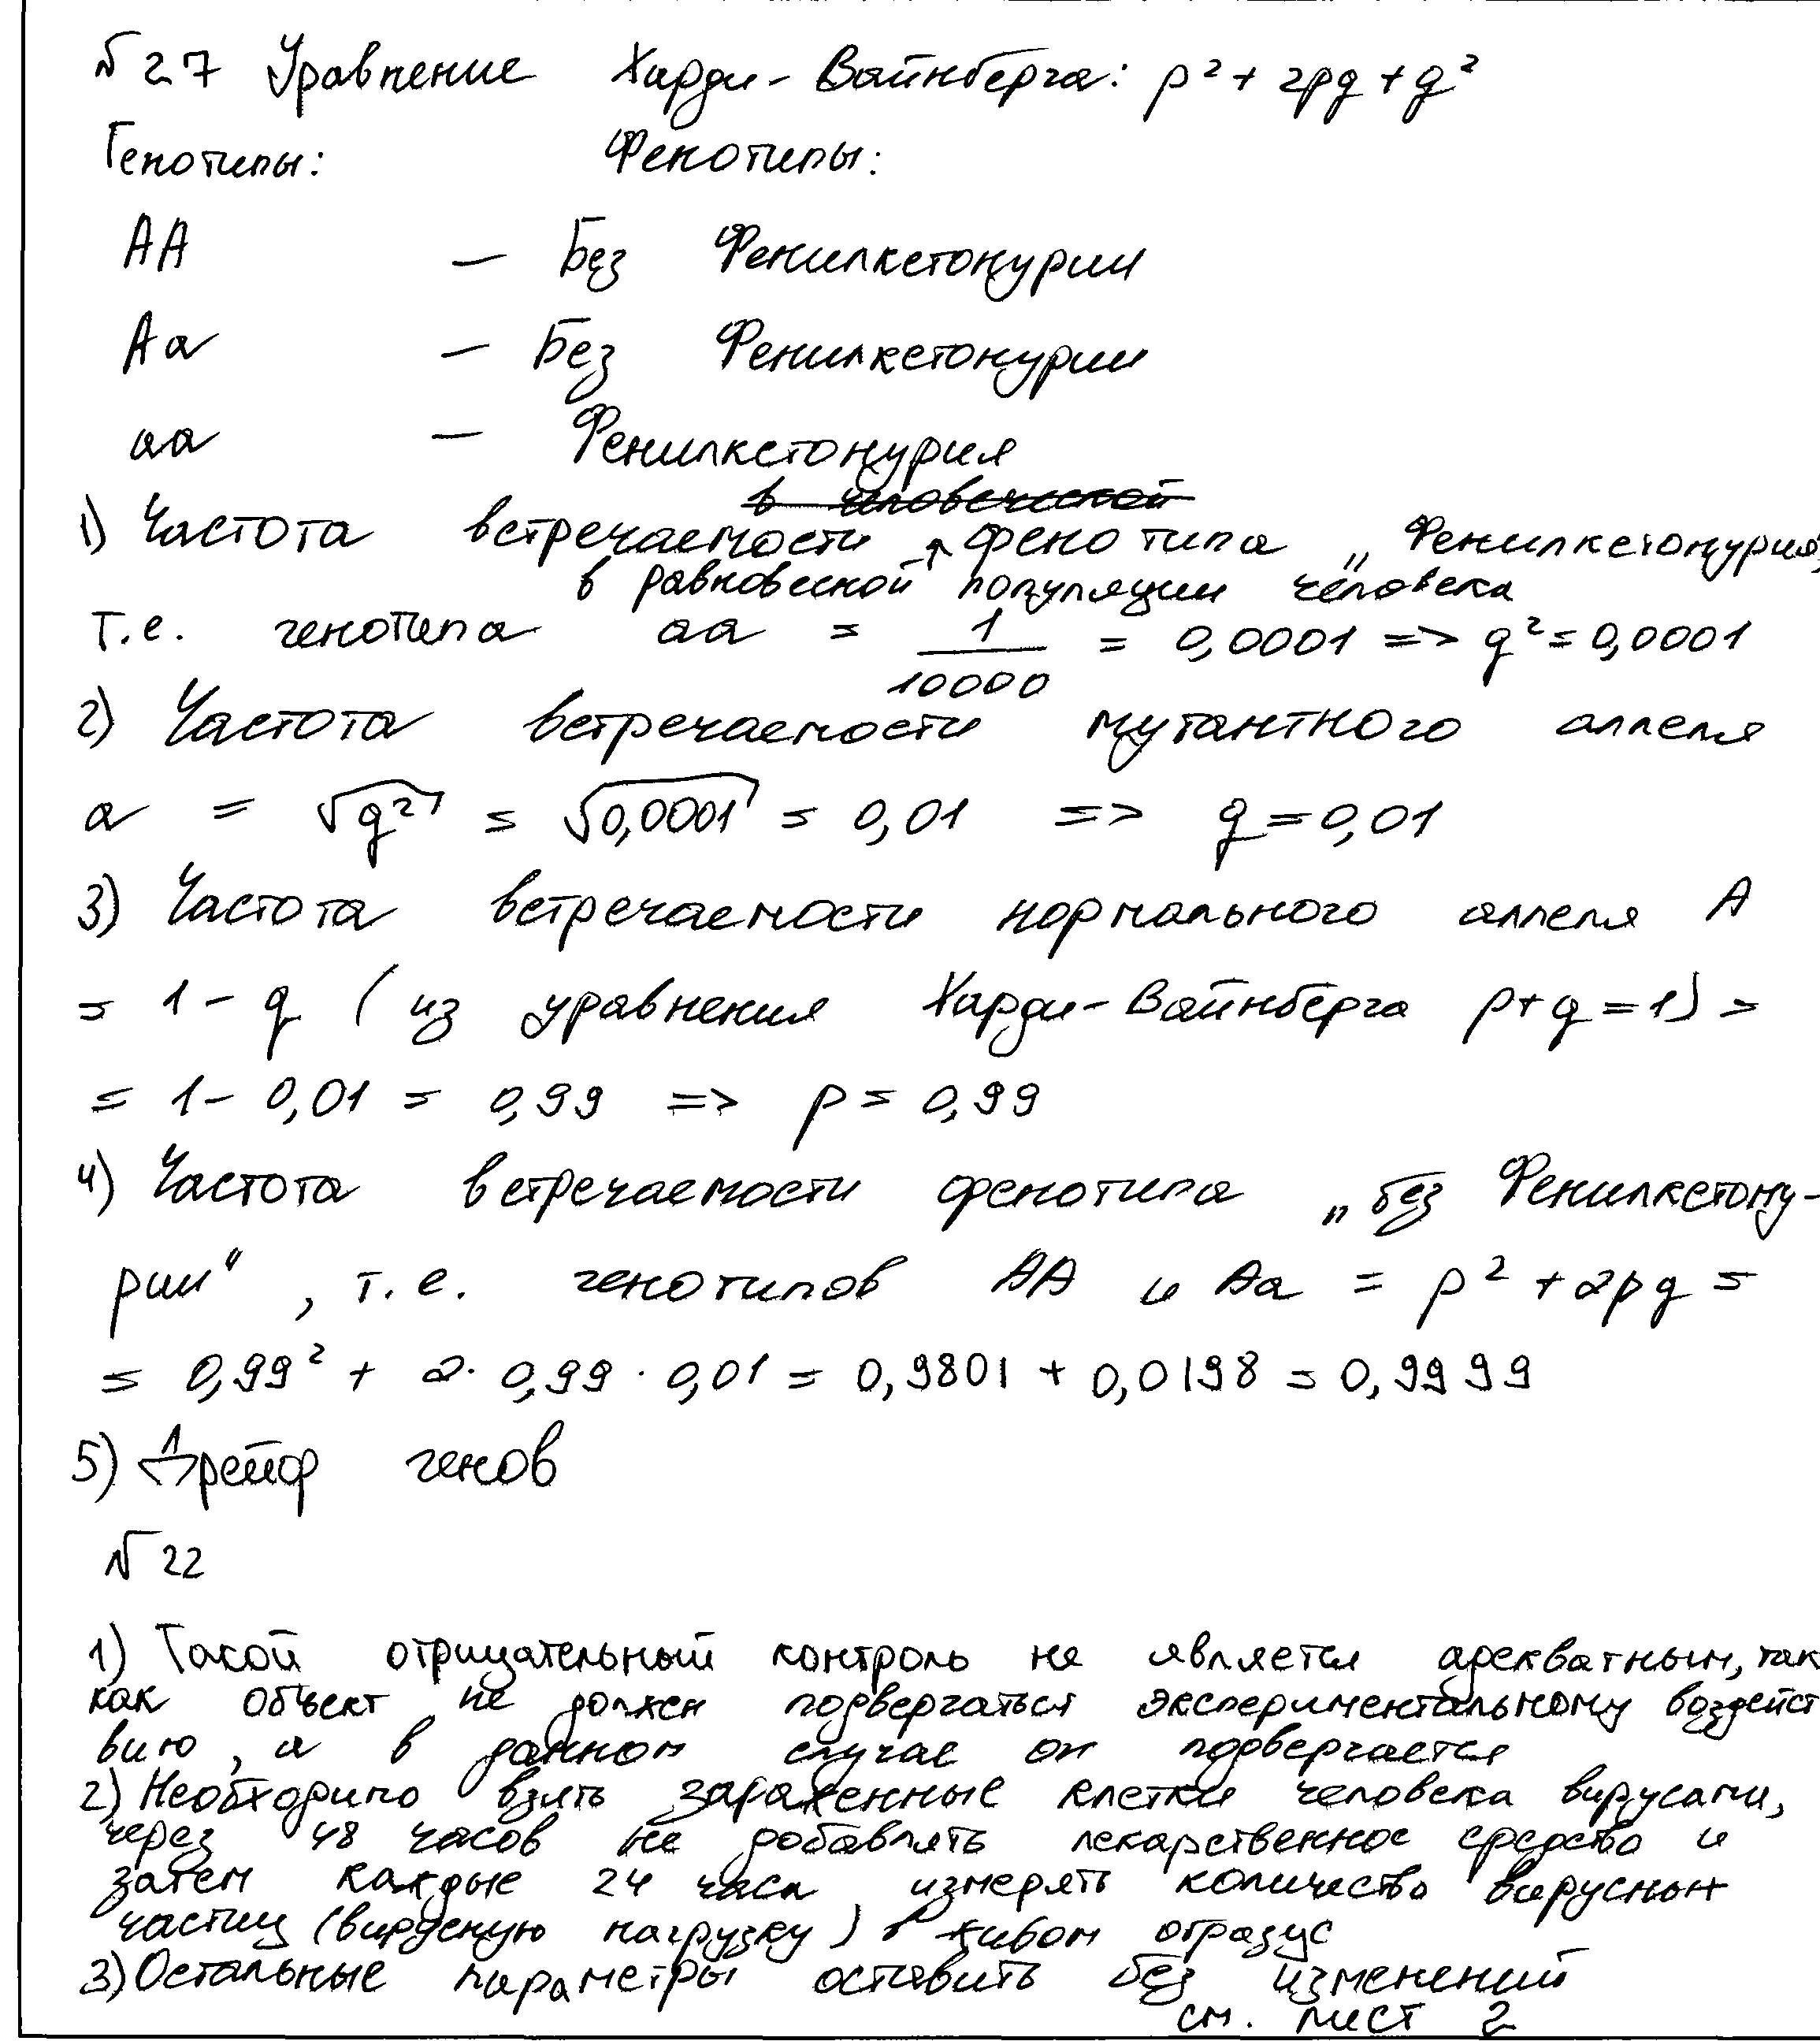 №27 Уравнение Харди-Вайнберга: p² + 2pq + q²
Генотипы: Фенотипы:
AA — Без Фенилкетонурии
Aa — Без Фенилкетонурии
aa — Фенилкетонурия
в человеческой
1) Частота встречаемости ↑ фенотипа „Фенилкетонурия,
в равновесной популяции человека
т.е. генотипа aa = 1/10000 = 0,0001 => q² = 0,0001
2) Частота встречаемости мутантного аллеля
a = √q² = √0,0001 = 0,01 => q = 0,01
3) Частота встречаемости нормального аллеля A
= 1 - q (из уравнения Харди-Вайнберга p+q=1) =
= 1 - 0,01 = 0,99 => p = 0,99
4) Частота встречаемости фенотипа „без Фенилкетону-
рии", т.е. генотипов AA и Aa = p² + 2pq =
= 0,99² + 2 · 0,99 · 0,01 = 0,9801 + 0,0198 = 0,9999
5) Дрейф генов
№22
1) Такой отрицательный контроль не является адекватным, так
как объект не должен подвергаться экспериментальному воздейст
вию, а в данном случае он подвергается
2) Необходимо взять зараженные клетки человека вирусами,
через 48 часов не добавлять лекарственное средство и
затем каждые 24 часа измерять количество вирусных
частиц (вирусную нагрузку) в живом образце
3) Остальные параметры оставить без изменений
см. лист 2